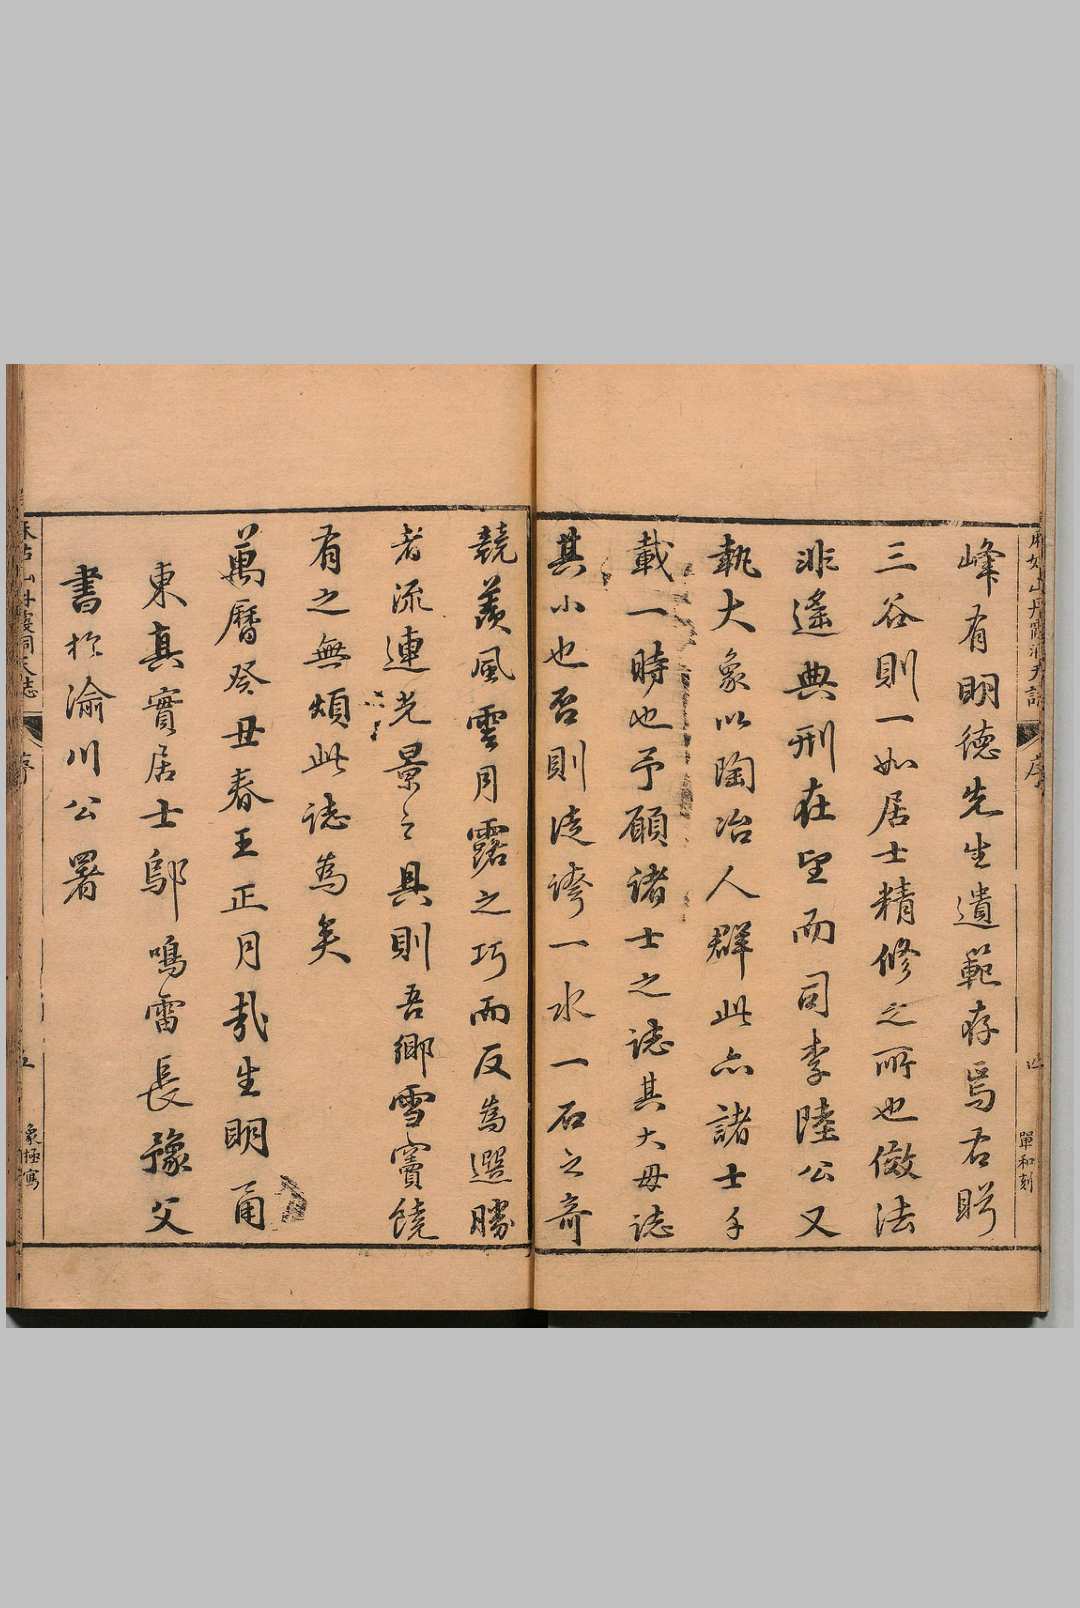 麻姑山丹霞洞天誌
序
四
單和刻
峰有明德先生遺範存焉右盻
三谷則一如居士精修之所也儆法
非遙典刑在望而司李陸公又
執大象以陶冶人群此亦諸士千
載一時也予願諸士之誌其大毋誌
其小也否則徒誇一水一石之奇
競羨風雲月露之巧而反為選勝
者流連光景之具則吾鄉雪竇饒
有之無煩此誌為矣
萬曆癸丑春王正月哉生明甬
東真實居士鄔鳴雷長豫父
書於渝川公署
麻姑山丹霞洞天誌
序
五
象極寫